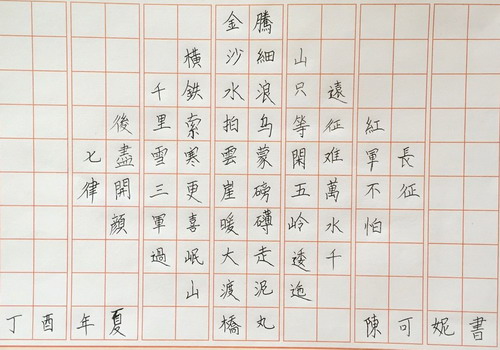 長征
紅軍不怕
遠征難萬水千
山只等閑五岭逶迤
騰細浪乌蒙磅礴走泥丸
金沙水拍雲崖暖大渡橋
橫鉄索寒更喜岷山
千里雪三軍過
後盡開顔
七律
丁酉年夏
陳可妮書